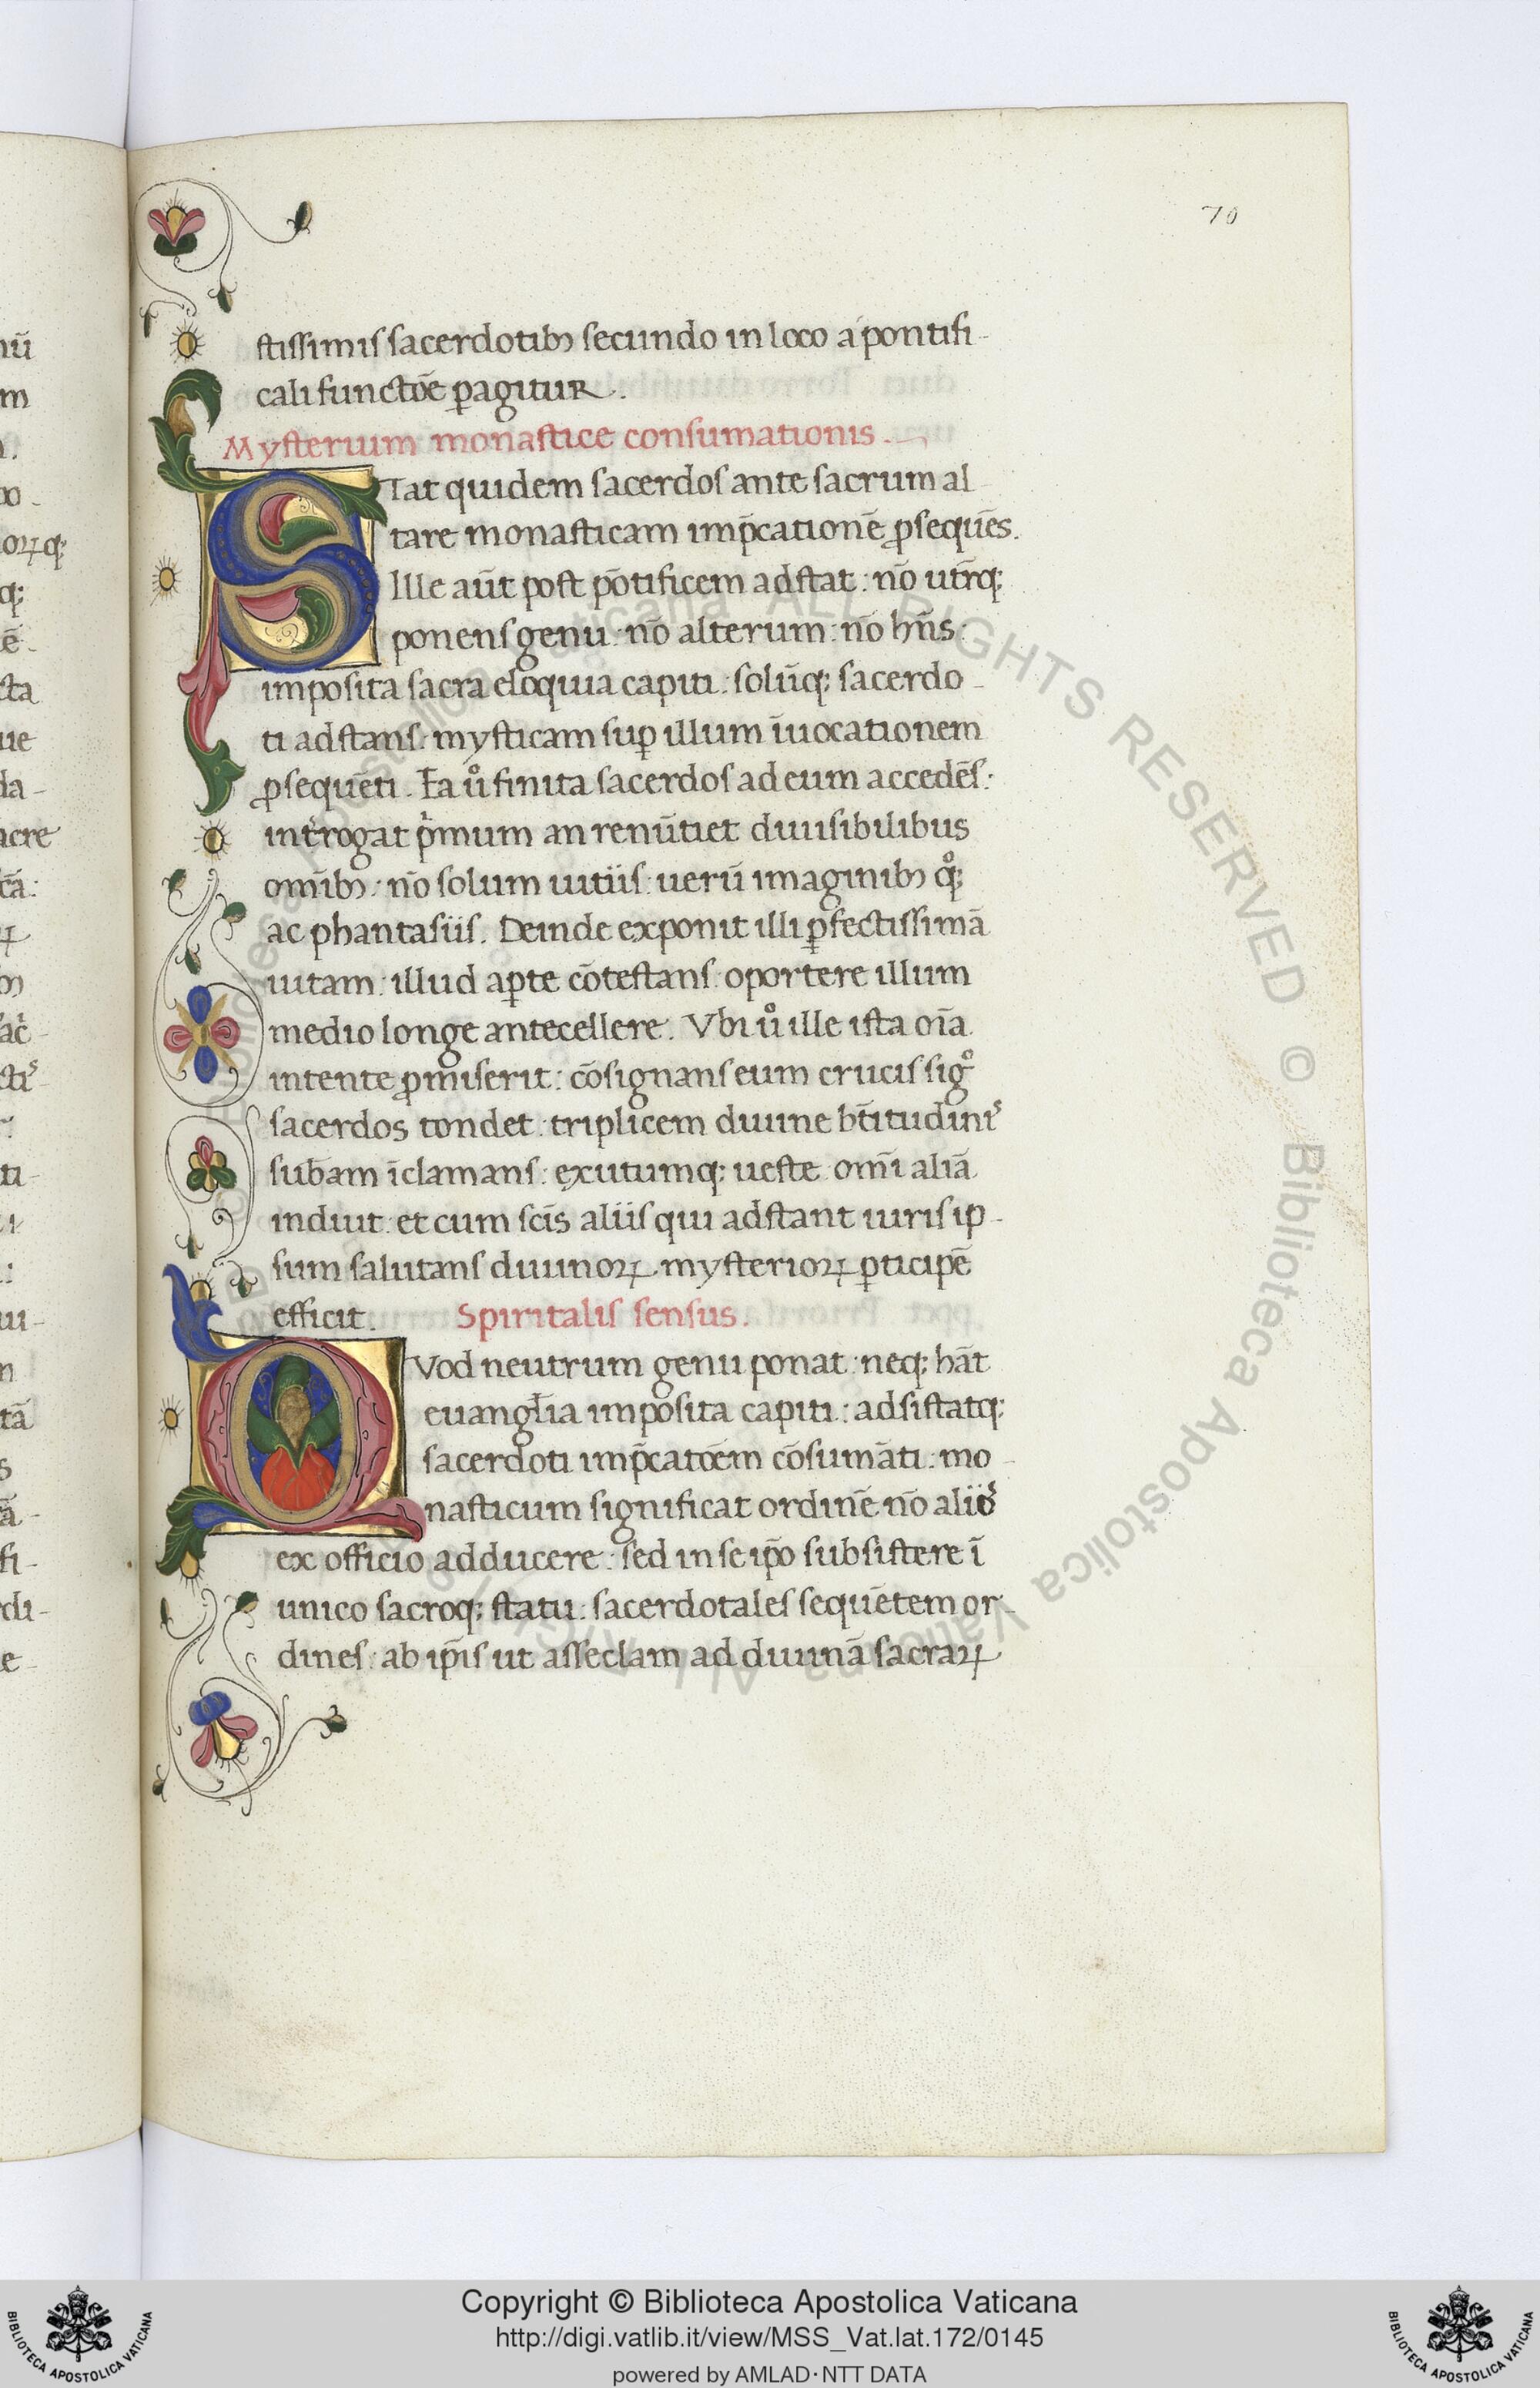 70
stissimis sacerdotibꝫ secundo in loco a pontifi-
cali functōe ꝑagitur.
Mysterium monastice consumationis.
STat quidem sacerdos ante sacrum al
tare monasticam imp̄cationē ꝓsequēs.
Ille aūt post pōtificem adstat: nō utrūqꝫ
ponens genu: nō alterum: nō hn̄s:
imposita sacra eloquia capiti: solūqꝫ sacerdo-
ti adstans: mysticam suꝑ illum īuocationem
ꝓsequēti. Ea ů finita sacerdos ad eum accedēs:
int̄rogat pͥmum an renūtiet diuisibilibus
omībꝫ: nō solum uitiis: uerū imaginibꝫ qͦꝫ
ac phantasiis. Deinde exponit illi ꝑfectissimā
uitam: illud aꝑte cōtestans: oportere illum
medio longe antecellere. Vbi ů ille ista oīa
intente ꝓmiserit: cōsignans eum crucis sigͦ
sacerdos tondet: triplicem diuine bt̄itudinis
sub̄am īclamans: exutumqꝫ ueste omī aliā
induit: et cum scīs aliis qui adstant uiris ip-
sum salutans diuinoꝝ mysterioꝝ ꝑticipē
efficit. Spiritalis sensus.
QVod neutrum genu ponat: neqꝫ hāt
euangl̄ia imposita capiti: adsistatqꝫ
sacerdoti imp̄catōem cōsumāti: mo-
nasticum significat ordinē nō alios
ex officio adducere: sed in se ip̄o subsistere ī
unico sacroqꝫ statu: sacerdotales sequētem or-
dines: ab ip̄is ut asseclam ad diuinā sacraꝝ
nū
m
oꝝqꝫ
qꝫ
ē-
cta
ue
da-
acre
cā:
ꝝ
ti-
tā
fi-
di-
e-
Copyright © Biblioteca Apostolica Vaticana
http://digi.vatlib.it/view/MSS_Vat.lat.172/0145
powered by AMLAD·NTT DATA
BIBLIOTECA APOSTOLICA VATICANA
BIBLIOTECA APOSTOLICA VATICANA
ALL RIGHTS RESERVED © Biblioteca Apostolica Vaticana